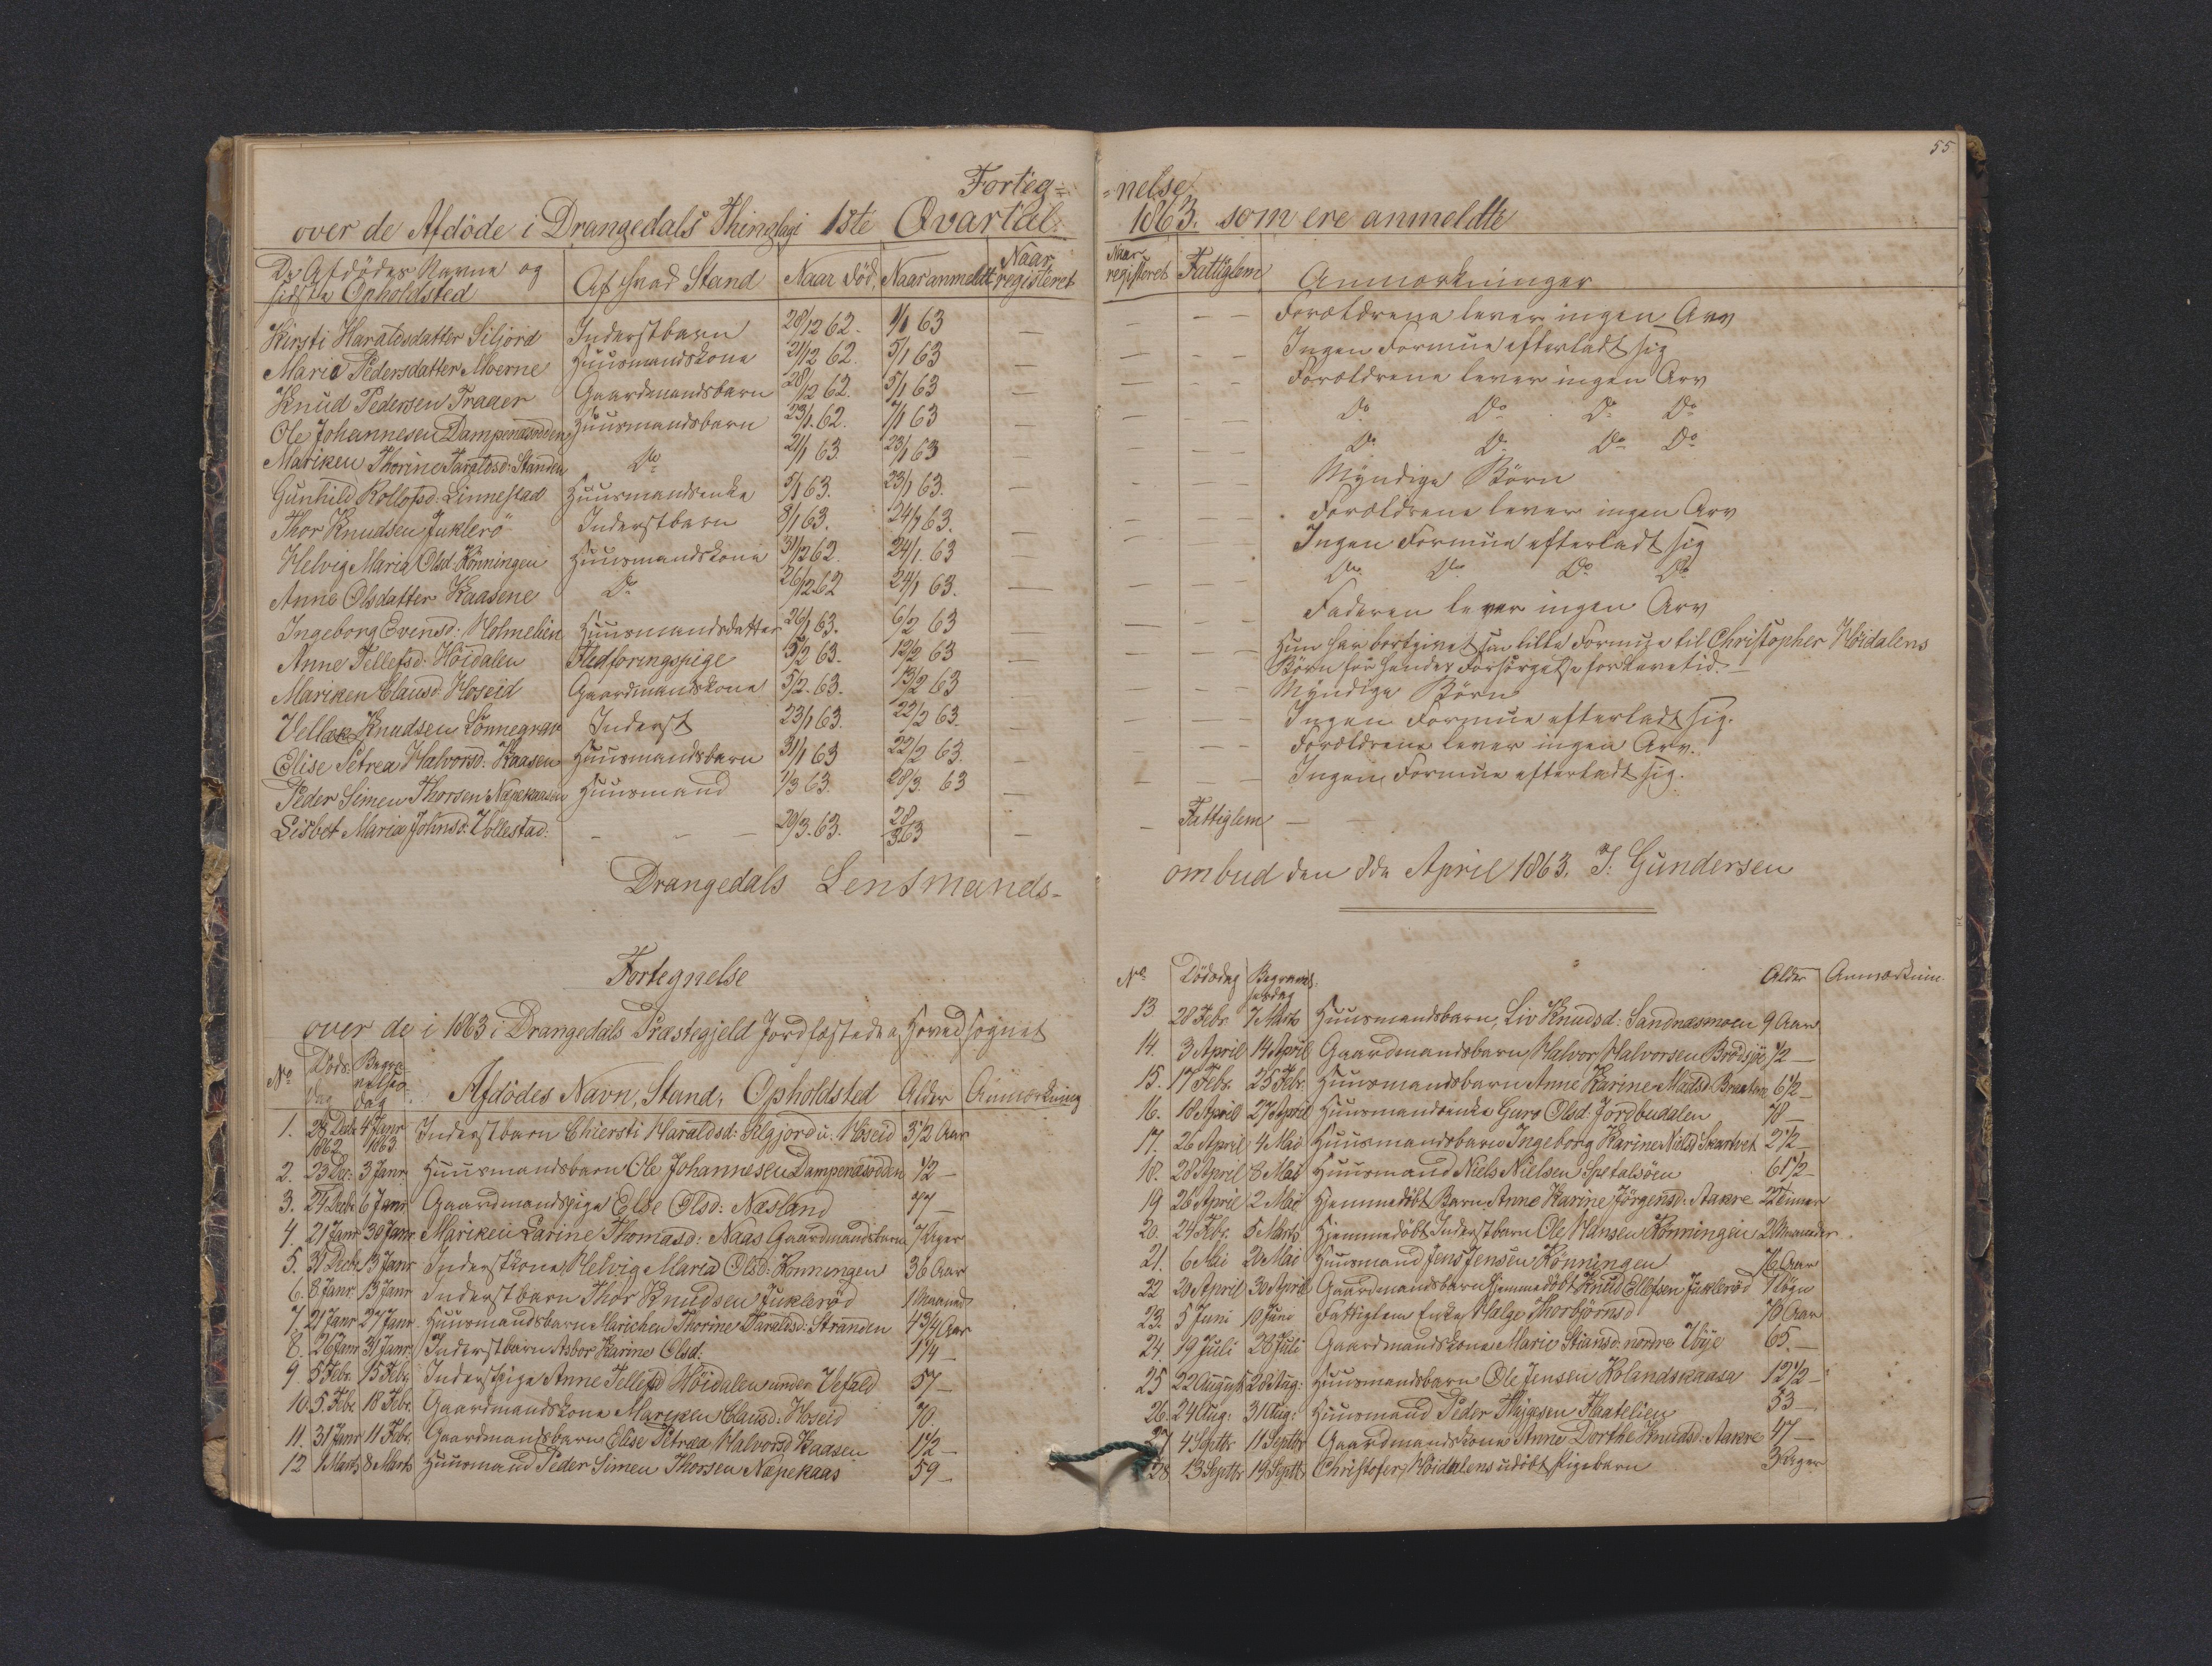 55
Forteg=
=nelse
over de Afdöde i Drangedals Thinglagi 1ste Qvartal
1863. som ere anmeldte
De Afdödes Navne og sidste Opholdsted | Af hvad Stand | Naar död | Naar anmeldt | Naar registeret
Naar registeret | Fattiglem | Anmærkninger
Kirsti Haraldsdatter Siljord | Inderstbarn | 28/12 62. | 1/1 63 | — | — | — — | Forældrene lever ingen Arv
Maria Pedersdatter Moerne | Huusmandskone | 21/12 62. | 5/1 63 | — | — | — — | Ingen Formue efterladt sig
Knud Pedersen Traaer | Gaardmandsbarn | 28/12 62. | 5/1 63 | — | — | — — | Forældrene lever ingen Arv
Ole Johannesen Dampenæsodden | Huusmandsbarn | 23/1. 62. | 7/1 63 | — | — | — — | Do Do Do Do
Mariken Thorine Taraldsd: Standen | Do | 21/1 63. | 23/1 63 | — | — | — — | Do Do Do Do
Gunhild Rollofsd: Linnestad | Huusmandsenke | 5/1 63. | 23/1 63. | — | — | — — | Myndige Börn
Thor Knudsen Juklerö | Inderstbarn | 8/1 63. | 24/1 63. | — | — | — — | Forældrene lever ingen Arv
Helvig Maria Olsd: Könningen | Huusmandskone | 31/12 62. | 24/1. 63 | — | — | — — | Ingen Formue efterladt sig
Anne Olsdatter Kaasene | Do | 26/12 62 | 24/1 63. | — | — | — — | Do Do Do Do
Ingeborg Evensd: Holmelien | Huusmandsdatter | 26/1 63. | 6/2 63 | — | — | — — | Faderen lever ingen Arv
Anne Tellefsd: Höidalen | Flodforingspige | 5/2 63. | 12/2 63 | — | — | — — | Hun har bortgivet sin lille Formue til Christopher Höidalens
Börn for hendes Forsörgelse for Levetid. —
Mariken Clausd: Hoseid | Gaardmandskone | 5/2. 63. | 13/2 63 | — | — | — — | Myndige Börn
Vellek Knudsen Lönnegrav | Inderst | 23/1 63. | 22/2 63. | — | — | — — | Ingen Formue efterladt sig.
Elise Petrea Halvorsd: Kaasen | Huusmandsbarn | 31/1 63 | 22/2 63. | — | — | — — | Forældrene lever ingen Arv.
Peder Simen Thorsen Næpekaasen | Huusmand | 1/3 63. | 28/3. 63 | — | — | — — | Ingen Formue efterladt sig.
Lisbet Maria Johnsd: Vollestad. | — — — | 20/3. 63. | 28/3 63 | — | — | Fattiglem | — —
Drangedals Lensmands-
ombud den 8de April 1863. J: Gundersen
Fortegnelse
over de i 1863 i Drangedals Præstegjeld Jordfæstede a, Hovedsognet
No | Döds: dag | Begravelses dag | Afdödes Navn, Stand, Opholdsted | Alder | Anmærkning
1. | 28 Decbr 1862 | 4 Janr 1863 | Inderstbarn Chiersti Haraldsd: Selgjord u. Hoseid | 3 1/2 Aar
2. | 23 De: | 3 Janr | Huusmandsbarn Ole Johannesen Dampenæsodden | 1/2 —
3. | 24 Decbr | 6 Janr | Gaardmandspige Else Olsd: Næsland | 77 —
4. | 21 Janr | 30 Janr | Mariken Larine Thomasd: Naas Gaardmandsbarn | 7 Uger
5. | 31 Decbr | 13 Janr | Inderstkone Helvig Maria Olsd: Könningen | 36 Aar
6. | 8 Janr | 13 Janr | Inderstbarn Thor Knudsen Juklerød | 1 Maaned
7. | 21 Janr | 27 Janr | Huusmandsbarn Marichen Thorine Taraldsd: Stranden | 4 3/4 Aar
8. | 26 Janr | 31 Janr | Inderstbarn Asbor Karine Olsd: | 1 1/4 —
9. | 5 Febr. | 15 Febr. | Inderstpige Anne Tellefsd Höidalen under Vefald | 57 —
10. | 5. Febr. | 18 Febr. | Gaardmandskone Mariken Clausd: Hoseid | 70.
11. | 31 Janr | 11 Febr. | Gaardmandsbarn Elise Petræa Halvorsd Kaasen | 1 1/2 —
12 | 1 Marts | 8 Marts | Huusmand Peder Simen Thorsen Næpekaas | 59 —
No | Dödsdag | Begravelsesdag | Alder | Anmærkning
13 | 28 Febr. | 7 Marts | Huusmandsbarn, Liv Knudsd: Sandnæsmoen | 9 Aar
14. | 3 April | 14 April | Gaardmandsbarn Halvor Halvorsen Brødsjøe | 1/2 —
15. | 17 Febr. | 25 Febr. | Huusmandsbarn Anne Karine Madsd: Braaten | 6 1/2 —
16. | 18 April | 27 April | Huusmandsenke Guro Olsd: Jordbudalen | 78 —
17. | 26 April | 4 Mai | Huusmandsbarn Ingeborg Karine Nielsd Skartveit | 2 1/2 —
18. | 28 April | 8 Mai | Huusmand Niels Nielsen Spetalsöen | 61 1/2 —
19 | 28 April | 2 Mai | Hjemmedöbt Barn Anne Karine Jörgensd. Aakre | 22 Timer
20. | 24 Febr. | 5 Marts | Hjemmedöbt Inderstbarn Ole Hansen Könningen | 2 Maaneder
21. | 6 Mai | 20 Mai | Huusmand Jens Jensen Könningen | 76 Aar
22 | 20 April | 30 April | Gaardmandsbarn hjemmedöbt Knud Ellefsen Juklerød | 7 Dögn
23. | 5 Juni | 10 Juni | Fattiglem Enke Helge Thorbjörnsd | 76 Aar
24. | 19 Juli | 28 Juli | Gaardmandskone Marie Stiansd. nordre Voje | 65. —
25 | 22 August | 28 Aug: | Huusmandsbarn Ole Jensen Holandskaasa | 12 1/2 —
26. | 24 Aug: | 31 Aug: | Huusmand Peder Thygesen Haatelien | 53 —
27 | 4 Septbr | 11 Septbr | Gaardmandskone Anne Dorthe Knudsd: Aakre | 47 —
28 | 13 Septbr | 19 Septbr | Christofer Höidalens udöbt Pigebarn | 3 Uger